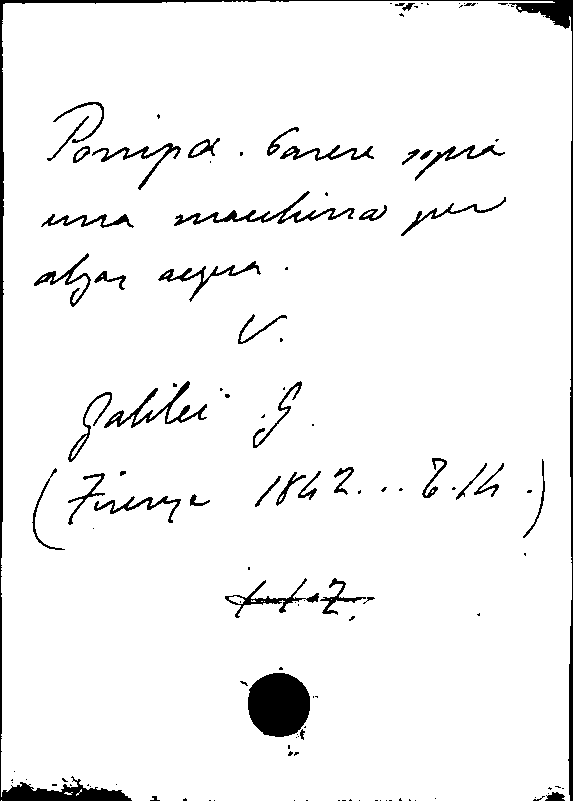 Pompa. Parere sopra
una macchina per
alzar acqua.
V.
Galilei G.
(Firenze 1842... T.14.)